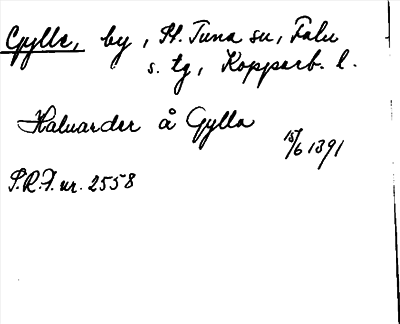 Gylle, by, St. Tuna sn, Falu
s. tg, Kopparb. l.
Haluarder å Gylla
15/6 1391
S.R.A. nr. 2558